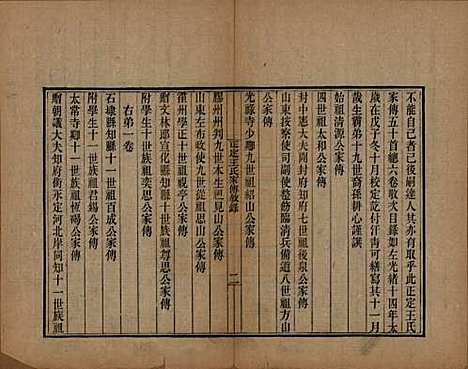 不能自已者已後嗣達人其亦有取乎此正定王氏
家傳五十首總六卷敘次目錄如左光緒十四年太
歲在戊子冬十月校定竣付汗靑可繕寫其十一月
生霸弟十九世裔孫耕心謹譔
始祖清源公家傳
四世祖太和公家傳
封中憲大夫開封府知府七世祖後泉公家傳
山東按察使司副使整飭臨清兵備道八世祖方山
公家傳
光祿寺少卿九世祖紹山公家傳
正定王氏家傳敘錄
二
膠州州判九世本生祖見山公家傳
山東左布政使九世從祖思山公家傳
灤州學正十世祖視亭公家傳
贈文林郎宣化縣知縣十世祖尊鄉公家傳
附學生十世族祖奕思公家傳
右弟一卷
石埭縣知縣十一世祖百成公家傳
附學生十一世族祖君錫公家傳
太常寺卿十一世族祖恆陽公家傳
贈朝議大夫知府銜永定河北岸同知十一世族祖